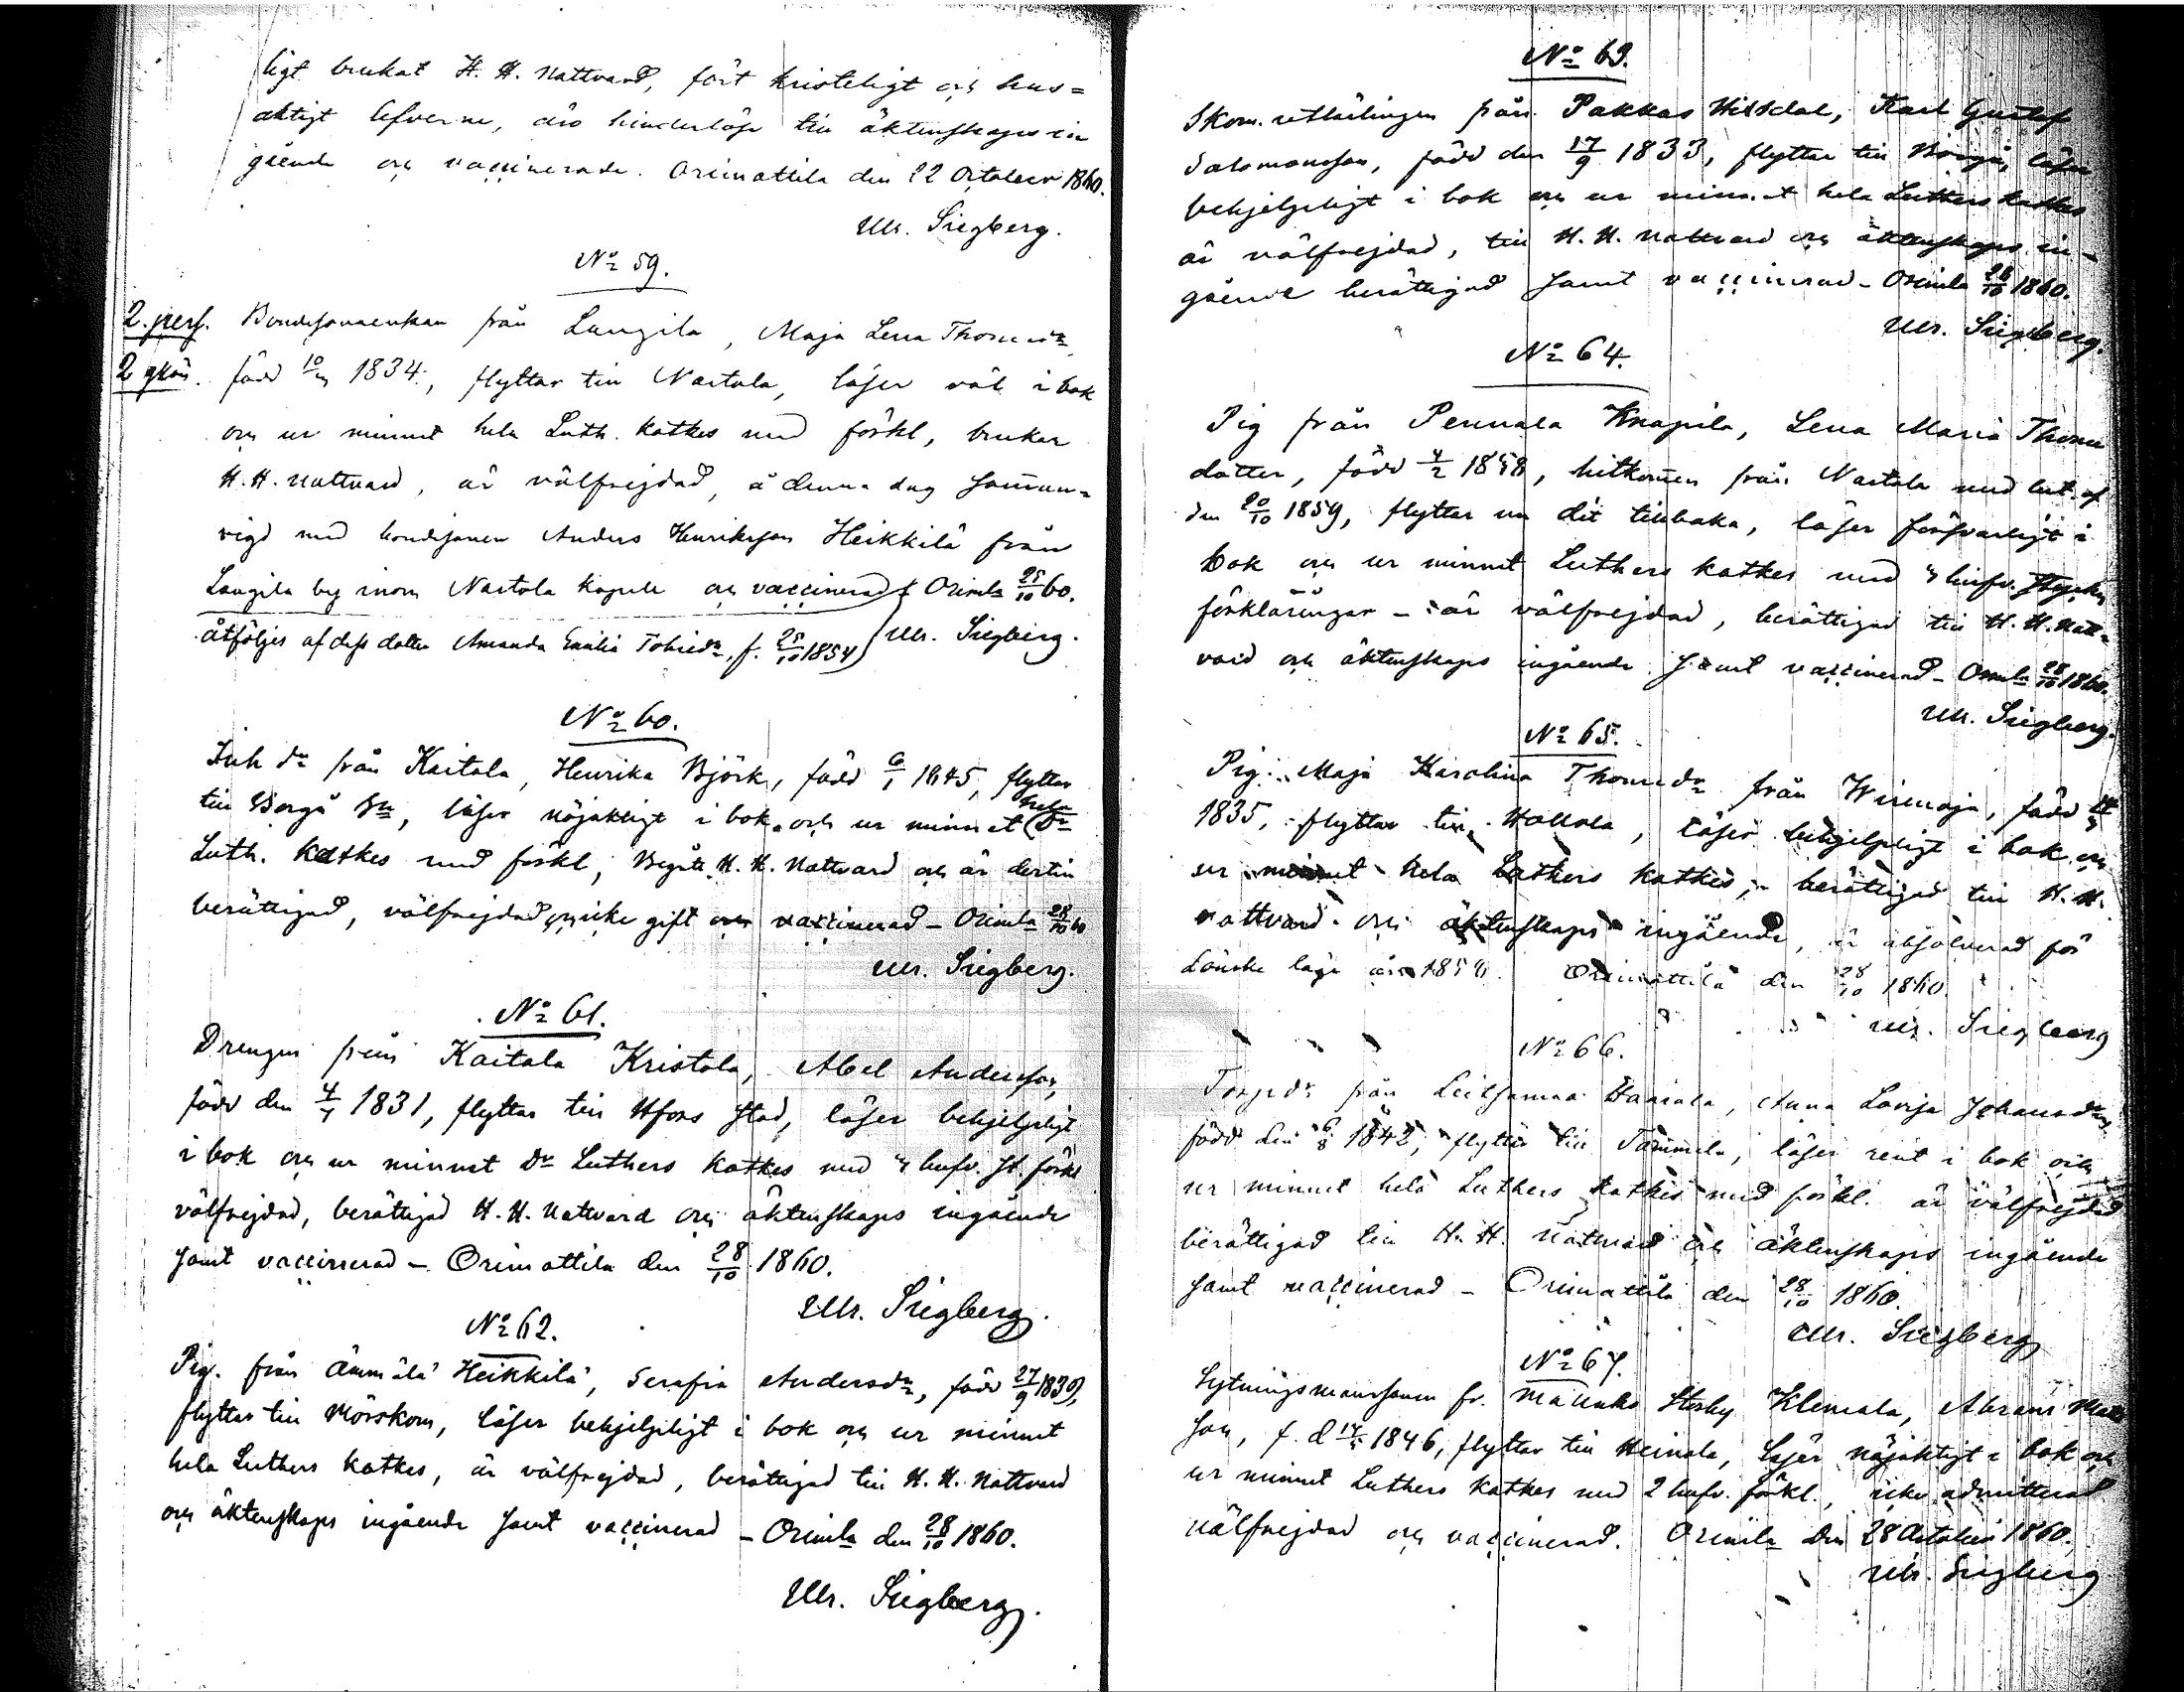 ligt brukat H. H. Nattvard, fört kristeligt och hus=
aktigt lefverne, äro hinderlöse till äktenskaps in
gående och vaccinerade. Orimattila den 22 October 1860.
Ulr. Siegberg.
No 59.
2. pers. Bondsonaenkan från Langila, Maja Lena Thomsdr
2 qkön. född 10/ 1834., flyttar till Nastola, läser väl i bok
och ur minnet hela Luth. katkes med förkl, brukar
H. H. Nattvard, är välfrejdad, å denna dag samman=
vigd med bondsonen Anders Henriksson Heikkilä från
Langila by inom Nastola kapell och vaccinerad Orimla 25/10 60.
åtföljes af dess dotter Amanda Emilia Tobiedr, f. 25/10 1854 Ulr. Siegberg.
No 60.
Inh dr från Kaitala, Henrika Björk, född 6/1 1845, flyttar
till Borgå Sn, läser nöjaktigt i bok och ur minnet hela Dr
Luth. Katkes med förkl, Begått H. H. Nattvard och är dertill
berättigad, välfrejdad, icke gift och vaccinerad – Orimla 28/10 60
Ulr. Siegberg.
No 61.
Drengen från Kaitala Kristola, Abel Andersson,
född den 4/4 1831, flyttar till Hfors stad, läser behjelpligt
i bok och ur minnet Dr Luthers Katkes med 4 hufv. st. förkl
välfrejdad, berättigad H. H. Nattvard och äktenskaps ingående
samt vaccinerad – Orimattila den 28/10 1860.
Ulr. Siegberg.
No 62.
Pig. från Ämmälä Heikkilä, Serafia Andersdr, född 27/9 1839,
flyttar till Mörskom, läser behjelpligt i bok och ur minnet
hela Luthers katkes, är välfrejdad, berättigad till H. H. Nattvard
och äktenskaps ingående samt vaccinerad – Orimla den 28/10 1860.
Ulr. Siegberg.
No 63.
Skom. utlärlingen från Pakkas Karl Gustaf
Salomonsson, född den 17/9 1833, flyttar till Borgå, läser
behjelpligt i bok och ur minnet hela Luthers katkes
är välfrejdad, till H. H. Nattvard och äktenskaps in-
gående berättigad samt vaccinerad – Orimla 28/10 1860.
Ulr. Siegberg.
No 64.
Pig från Pennala Knapila, Lena Maria Thoma
dotter, född 4/2 hitkommen från Nastola med bet. af
den 20/10 1859, flyttar nu dit tillbaka, läser försvarligt i
bok och ur minnet Luthers katkes med 4 hufv. styckens
förklaringar – är välfrejdad, berättigad till H. H. Natt=
vard och äktenskaps ingående samt vaccinerad – Orimla 28/10 1860.
Ulr. Siegberg.
No 65.
Pig. Maja Karolina Thomsdr från Wirenoja, född
1835, flyttar till Hollola, läser behjelpligt i bok och
ur minnet hela Luthers katkes, berättigad till H. H.
nattvard och äktenskaps ingående, är absolverad för
Lönske läge år Orimattila den 28/10 1860.
Ulr. Siegberg
No 66.
Torpdr från Leitsamaa Haniala, Anna Lovisa Johansdr,
född den 6/8 1842, flyttar till Tammela, läser rent i bok och
ur minnet hela Luthers katkes med förkl. är välfrejdad
berättigad till H. H. Nattvard och äktenskaps ingående
samt vaccinerad – Orimattila den 28/10 1860.
Ulr. Siegberg
No 67.
Sytningsmanssonen fr. Mallusko Storby Klemola, Abram Matts
son, f. d 1846, flyttar till Heinola, läser nöjaktigt i bok och
ur minnet Luthers katkes med 2 hufv. förkl., icke admitterad
välfrejdad och vaccinerad. Orimla den 28 October 1860.
Ulr. Siegberg